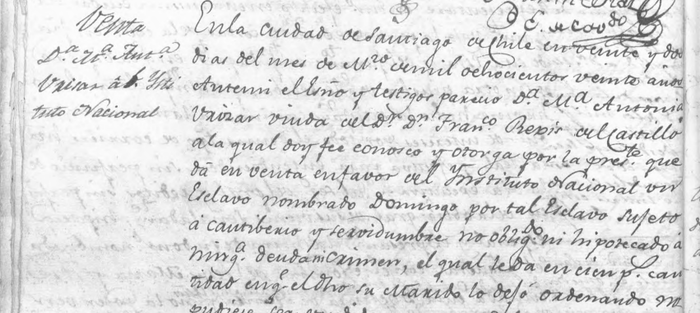 Venta
Da. Ma. Anta.
Urizar á el Yns
tituto Nacional
En la ciudad de Santiago de Chile en veinte y dos
dias del mes de Mzo. de mil ochocientos veinte años
Antemi el Esño y testigos parecio Da. Ma. Antonia
Urizar viuda del Dr. Dn. Franco. del Castillo
a la qual doy fee conosco y otorga por la preste. que
dá en venta en favor del Ynstituto Nacional un
Esclavo nombrado Domingo por tal Esclavo sujeto
á cautiberio y servidumbre no obligdo. ni hipotecado á
ninga. deuda ni crimen, el qual le da en cien ps. can
tidad en qe. el dho su Marido lo dejó ordenando
pudiese